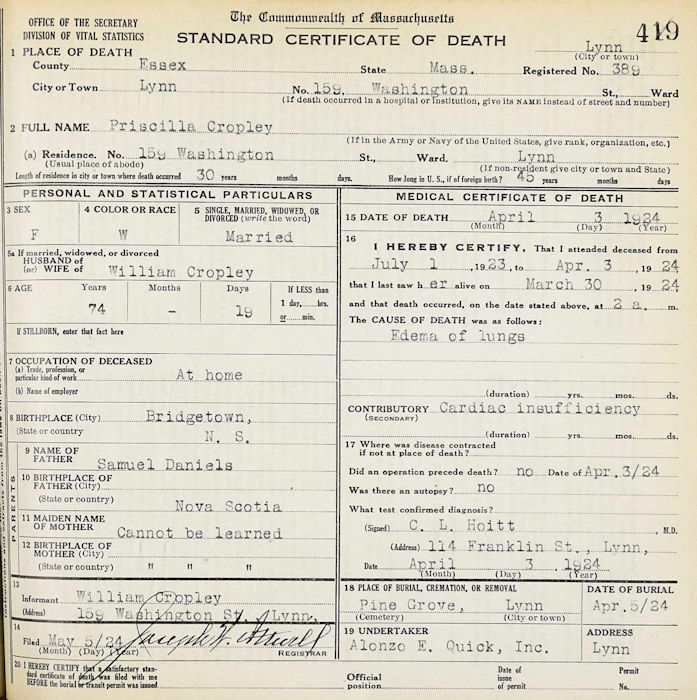 OFFICE OF THE SECRETARY
DIVISION OF VITAL STATISTICS
The Commonwealth of Massachusetts
STANDARD CERTIFICATE OF DEATH
419
Lynn
(City or town)
Registered No. 389
1 PLACE OF DEATH
County Essex State Mass.
City or Town Lynn No. 159 Washington St., Ward
(If death occurred in a hospital or institution, give its NAME instead of street and number)
2 FULL NAME Priscilla Cropley
(If in the Army or Navy of the United States, give rank, organization, etc.)
(a) Residence. No. 159 Washington St., Ward. Lynn
(Usual place of abode) (If non-resident give city or town and State)
Length of residence in city or town where death occurred 30 years months days. How long in U. S., if of foreign birth? 45 years months days
PERSONAL AND STATISTICAL PARTICULARS
3 SEX 4 COLOR OR RACE 5 SINGLE, MARRIED, WIDOWED, OR
DIVORCED (write the word)
F W Married
5a If married, widowed, or divorced
HUSBAND of
(or) WIFE of William Cropley
6 AGE Years Months Days If LESS than
1 day, hrs.
or min.
74 - 19
If STILLBORN, enter that fact here
7 OCCUPATION OF DECEASED
(a) Trade, profession, or
particular kind of work At home
(b) Name of employer
8 BIRTHPLACE (City) Bridgetown,
(State or country) N. S.
PARENTS
9 NAME OF
FATHER Samuel Daniels
10 BIRTHPLACE OF
FATHER (City)
(State or country) Nova Scotia
11 MAIDEN NAME
OF MOTHER Cannot be learned
12 BIRTHPLACE OF
MOTHER (City)
(State or country) " " "
13
Informant William Cropley
(Address) 159 Washington St., Lynn,
14
Filed May 5/24
(Month) (Day) (Year) REGISTRAR
20 I HEREBY CERTIFY that a satisfactory stan-
dard certificate of death was filed with me
BEFORE the burial or transit permit was issued
MEDICAL CERTIFICATE OF DEATH
15 DATE OF DEATH April 3 1924
(Month) (Day) (Year)
16
I HEREBY CERTIFY, That I attended deceased from
July 1, 1923, to Apr. 3, 1924
that I last saw her alive on March 30, 1924
and that death occurred, on the date stated above, at 2 a. m.
The CAUSE OF DEATH was as follows:
Edema of lungs
(duration) yrs. mos. ds.
CONTRIBUTORY Cardiac insufficiency
(SECONDARY)
(duration) yrs. mos. ds.
17 Where was disease contracted
if not at place of death?
Did an operation precede death? no Date of Apr.3/24
Was there an autopsy? no
What test confirmed diagnosis?
(Signed) C. L. Hoitt, M.D.
(Address) 114 Franklin St., Lynn,
Date April 3, 1924
(Month) (Day) (Year)
18 PLACE OF BURIAL, CREMATION, OR REMOVAL DATE OF BURIAL
Pine Grove, Lynn Apr.5/24
(Cemetery) (City or town)
19 UNDERTAKER ADDRESS
Alonzo E. Quick, Inc. Lynn
Official
position
Date of
issue
of permit
Permit
No.